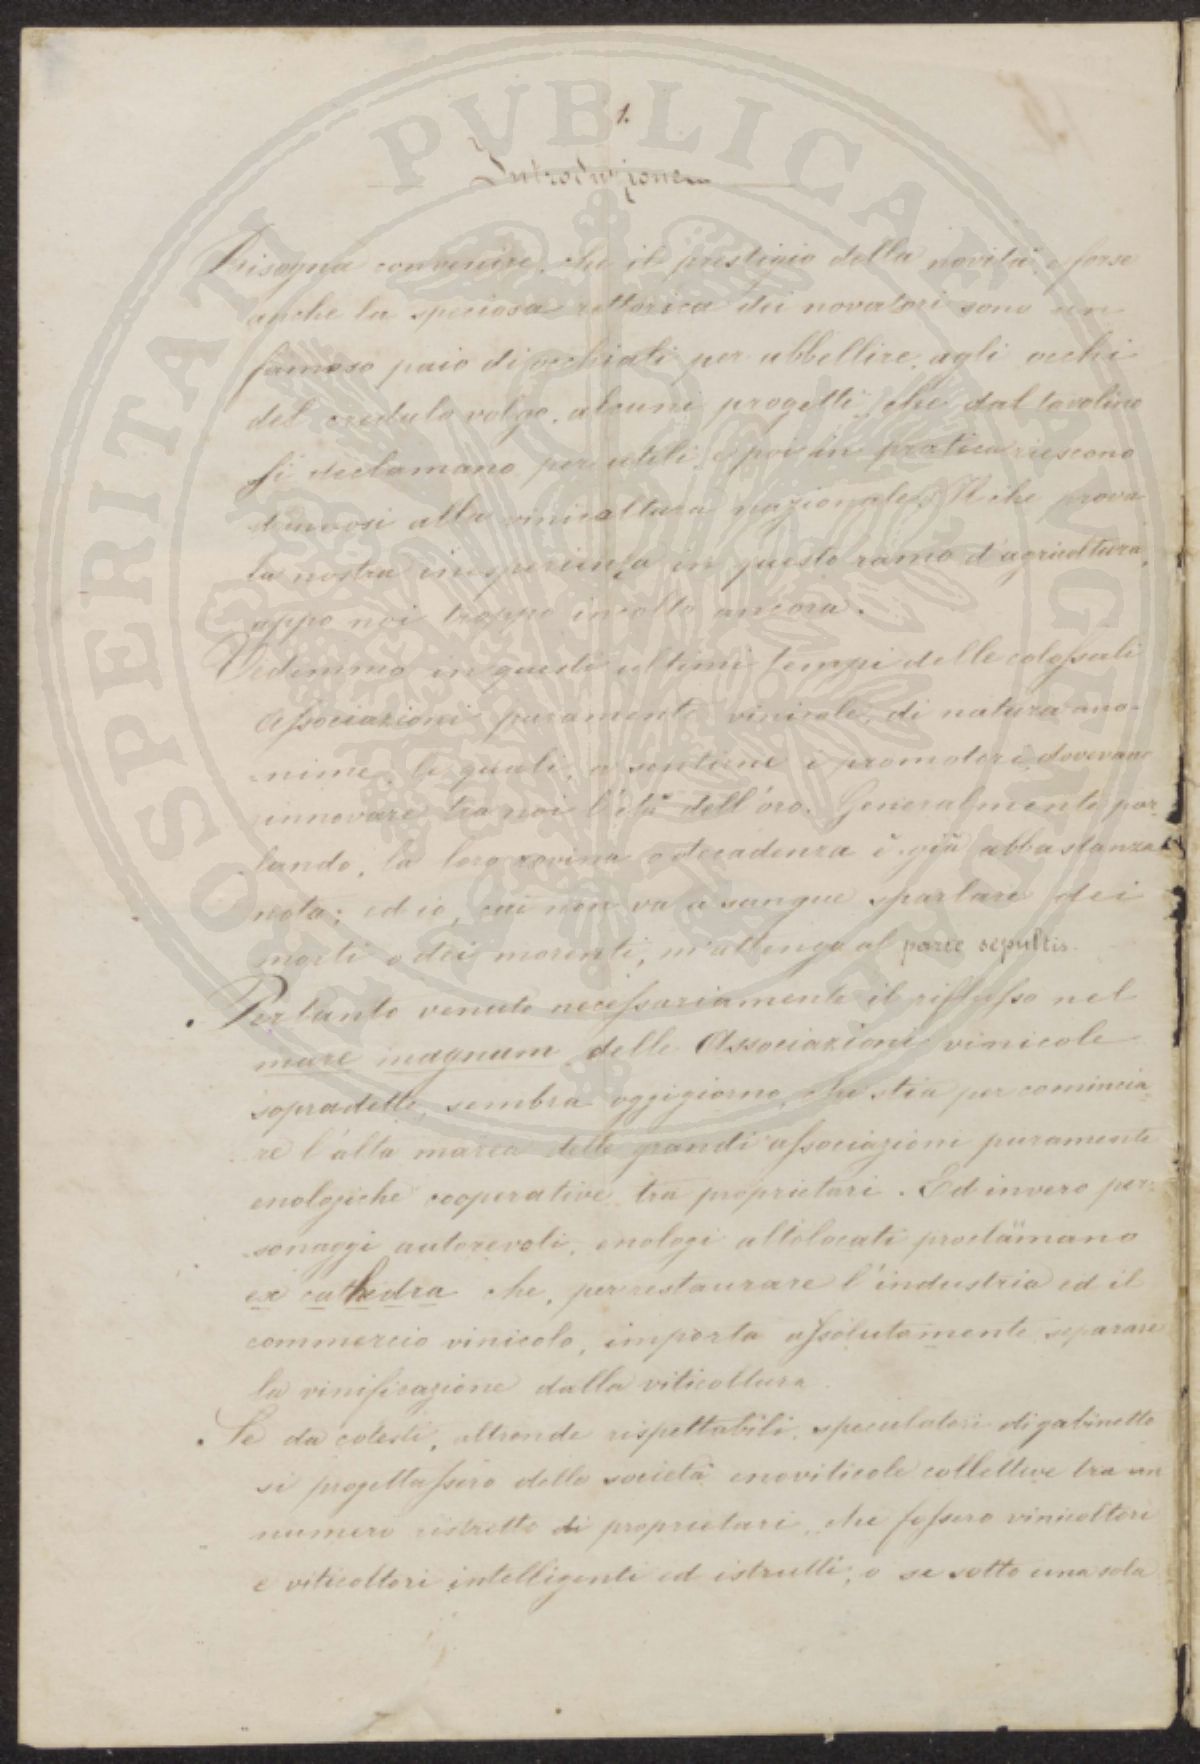 1.
Introduzione
Bisogna convenire, che il prestigio della novità, e forse
anche la speciosa rettorica dei novatori sono un
famoso paio di occhiali per abbellire, agli occhi
del credulo volgo, alcuni progetti, che dal tavolino
si declamano per utili, e poi in pratica riescono
dannosi alla vinicoltura nazionale. Il che prova
la nostra inesperienza in questo ramo d'agricoltura,
appo noi troppo incolto ancora.
Vedemmo in questi ultimi tempi delle colossali
Associazioni puramente vinicole, di natura ano-
nime, le quali, a sentirne i promotori, dovevano
rinnovare tra noi l'età dell'oro. Generalmente par-
lando, la loro rovina o decadenza è già abbastanza
nota; ed io, cui non va a sangue sparlare dei
morti o dei morenti, m'attengo al parce sepultis.
Pertanto venuto necessariamente il riflusso nel
mare magnum delle Associazioni vinicole
sopradette, sembra oggigiorno, che stia per comincia-
re l'alta marea delle grandi associazioni puramente
enologiche cooperative tra proprietari. Ed invero per-
sonaggi autorevoli, enologi altolocati proclamano
ex cathedra che, per restaurare l'industria ed il
commercio vinicolo, importa assolutamente separare
la vinificazione dalla viticoltura.
Se da cotesti, altronde rispettabili, speculatori di gabinetto
si progettassero delle società enoviticole collettive tra un
numero ristretto di proprietari, che fossero vinicoltori
e viticoltori intelligenti ed istrutti; o se sotto una sola
PVBLICAE
PROSPERITATI
AVGENDAE